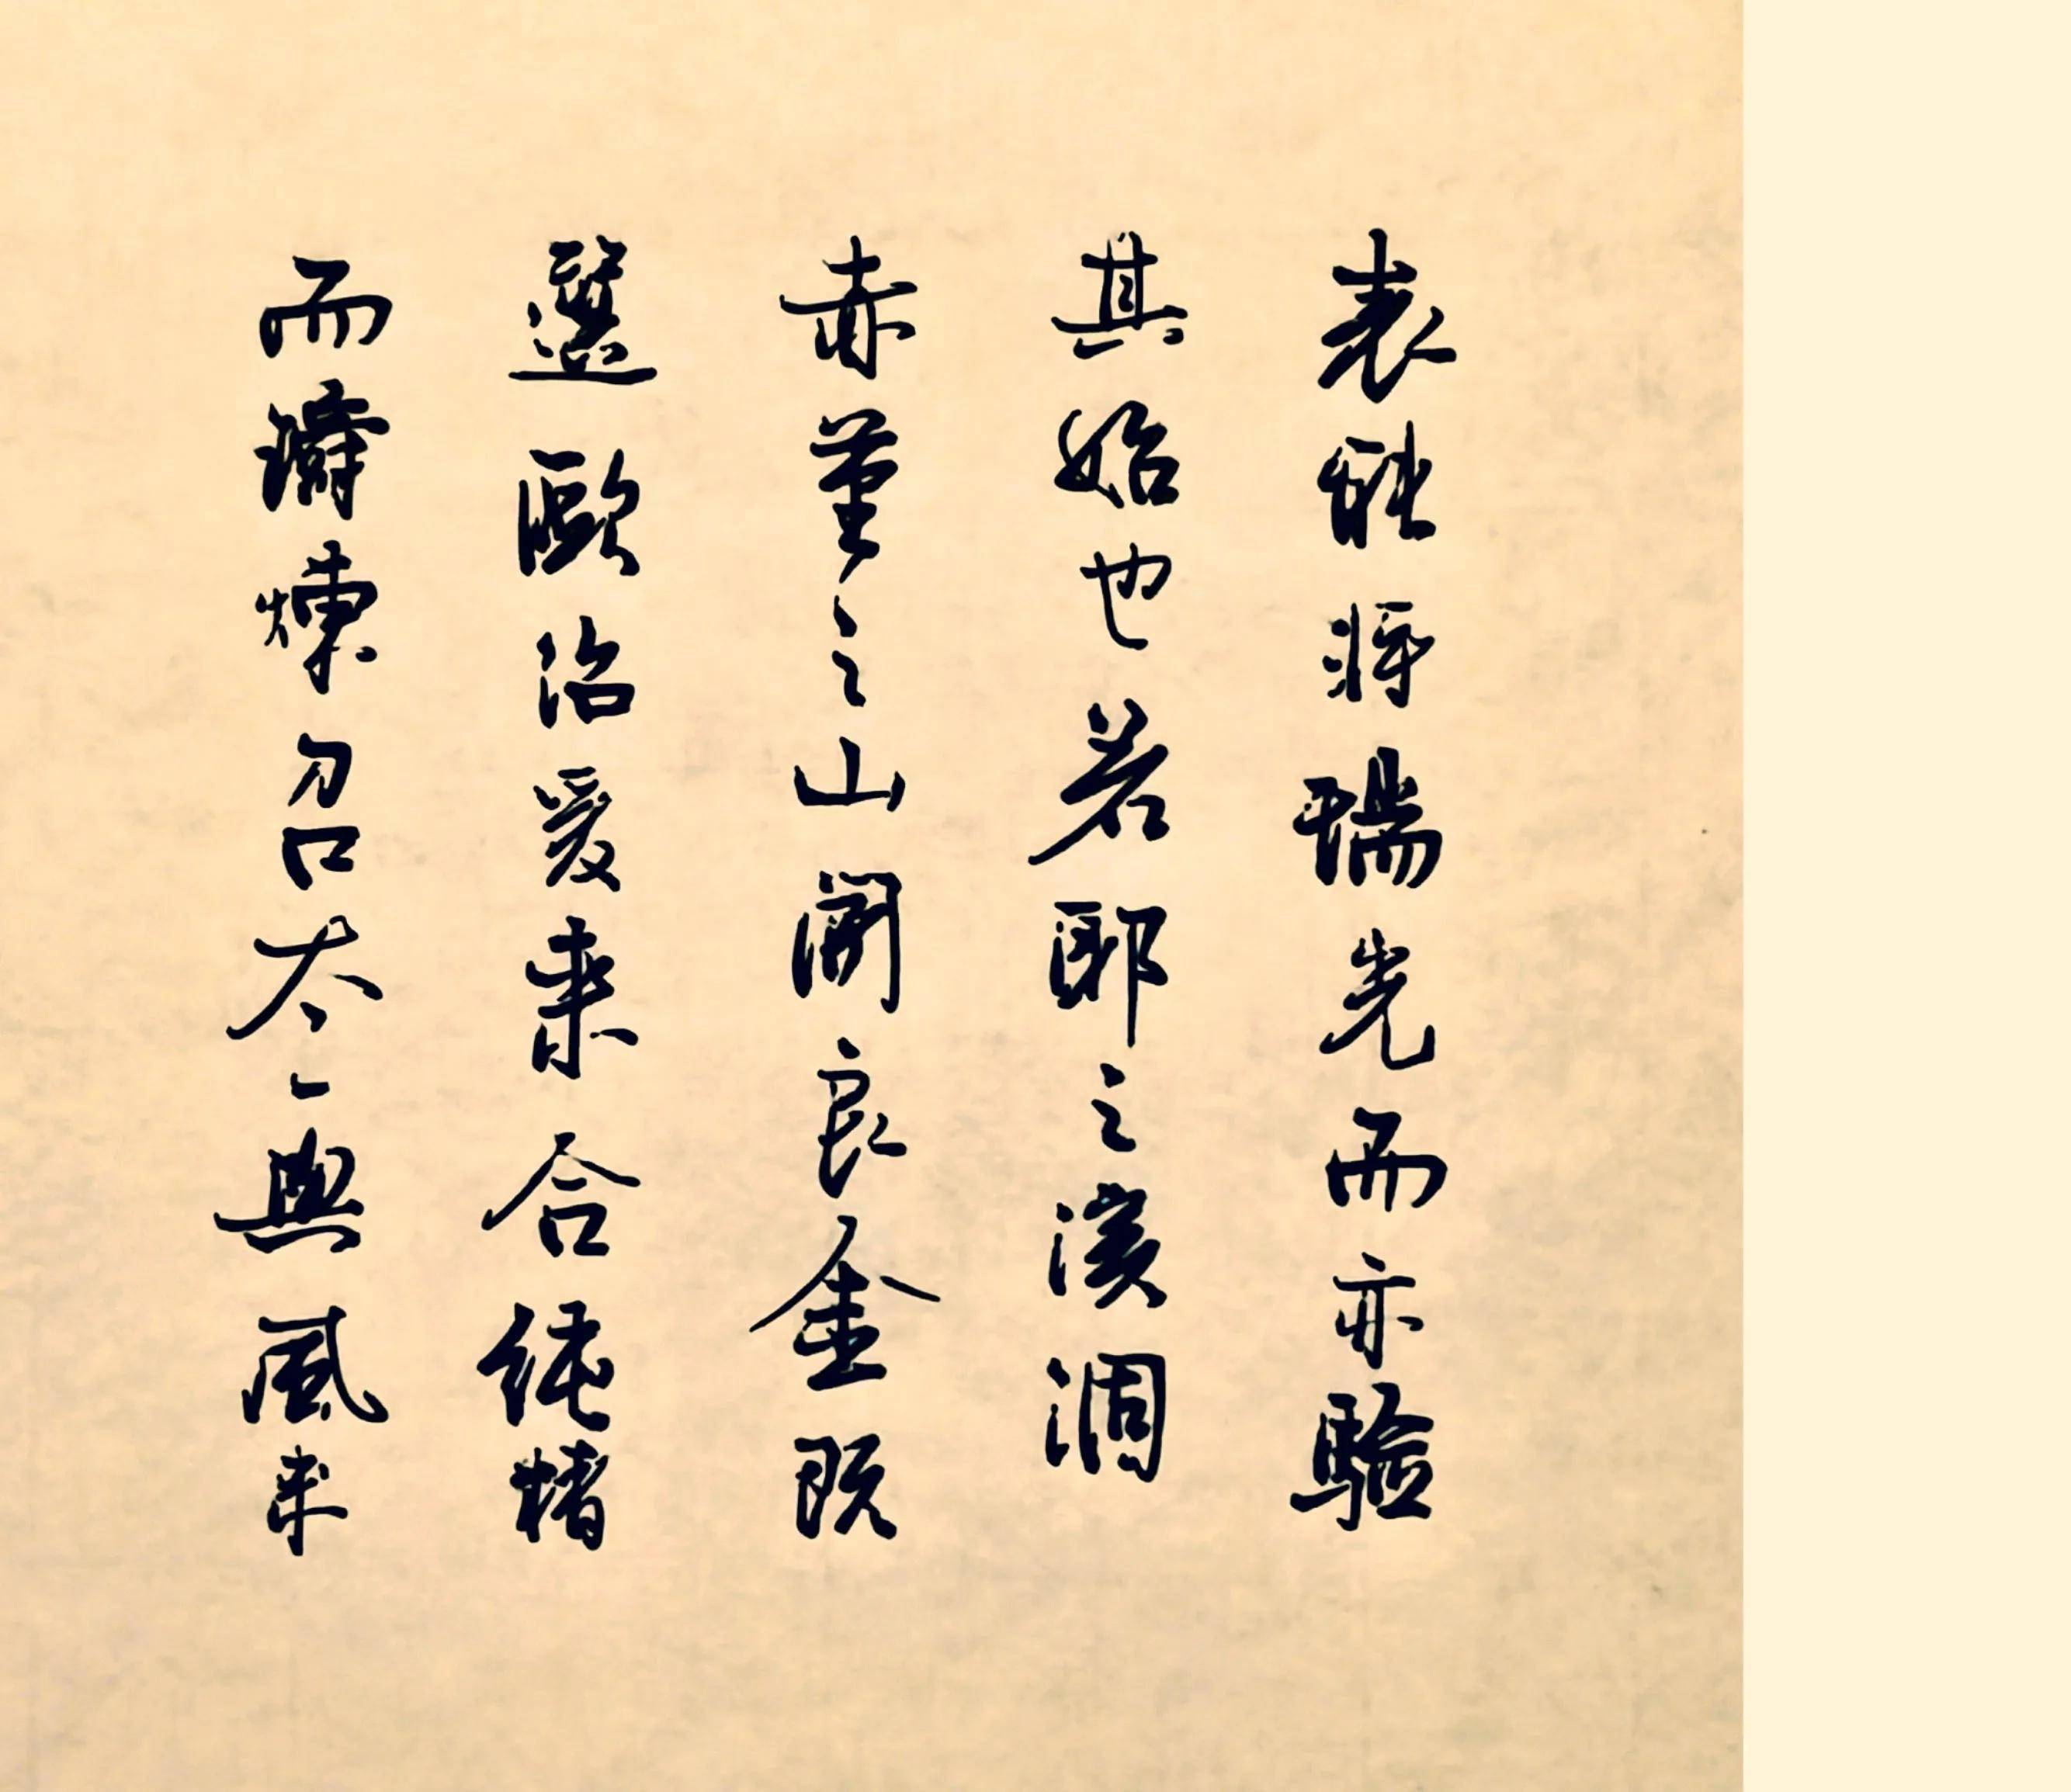 表能將瑞光而亦驗
其始也若耶之溪涸
赤堇之山開良金既
選歐冶爰來合純精
而濬煉召太一與風來